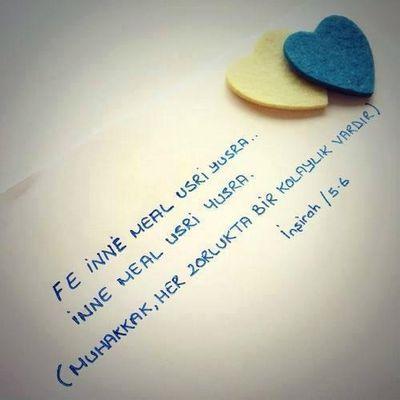 FE İNNE MEAL USRİ YUSRA..
İNNE MEAL USRİ YUSRA.
(MUHAKKAK, HER ZORLUKTA BİR KOLAYLIK VARDIR)
İnşirah / 5.6